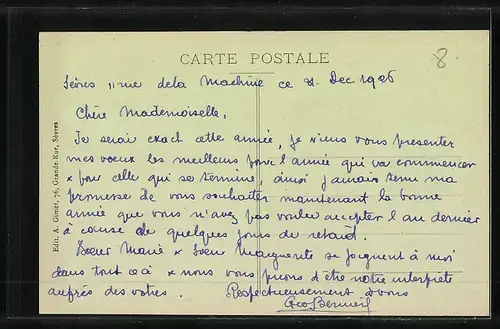 8
CARTE POSTALE
Sèvres 11 rue de la Machine ce 31 Dec 1926
Chère Mademoiselle,
Je serai exact cette année, je viens vous presenter
mes voeux les meilleurs pour l'année qui va commencer
x pour celle qui se termine, ainsi jamais tenu ma
promesse de vous souhaiter maintenant la bonne
année que vous n'avez pas voulu accepter l'an dernier
à cause de quelques jours de retard.
Soeur Marie x Soeur Marguerite se joignent à moi
dans tout ceci x nous vous prions d'être notre interprète
auprès des votres. Respectueusement à vous
Edit. A. Gimer, 74, Grande Rue, Sèvres